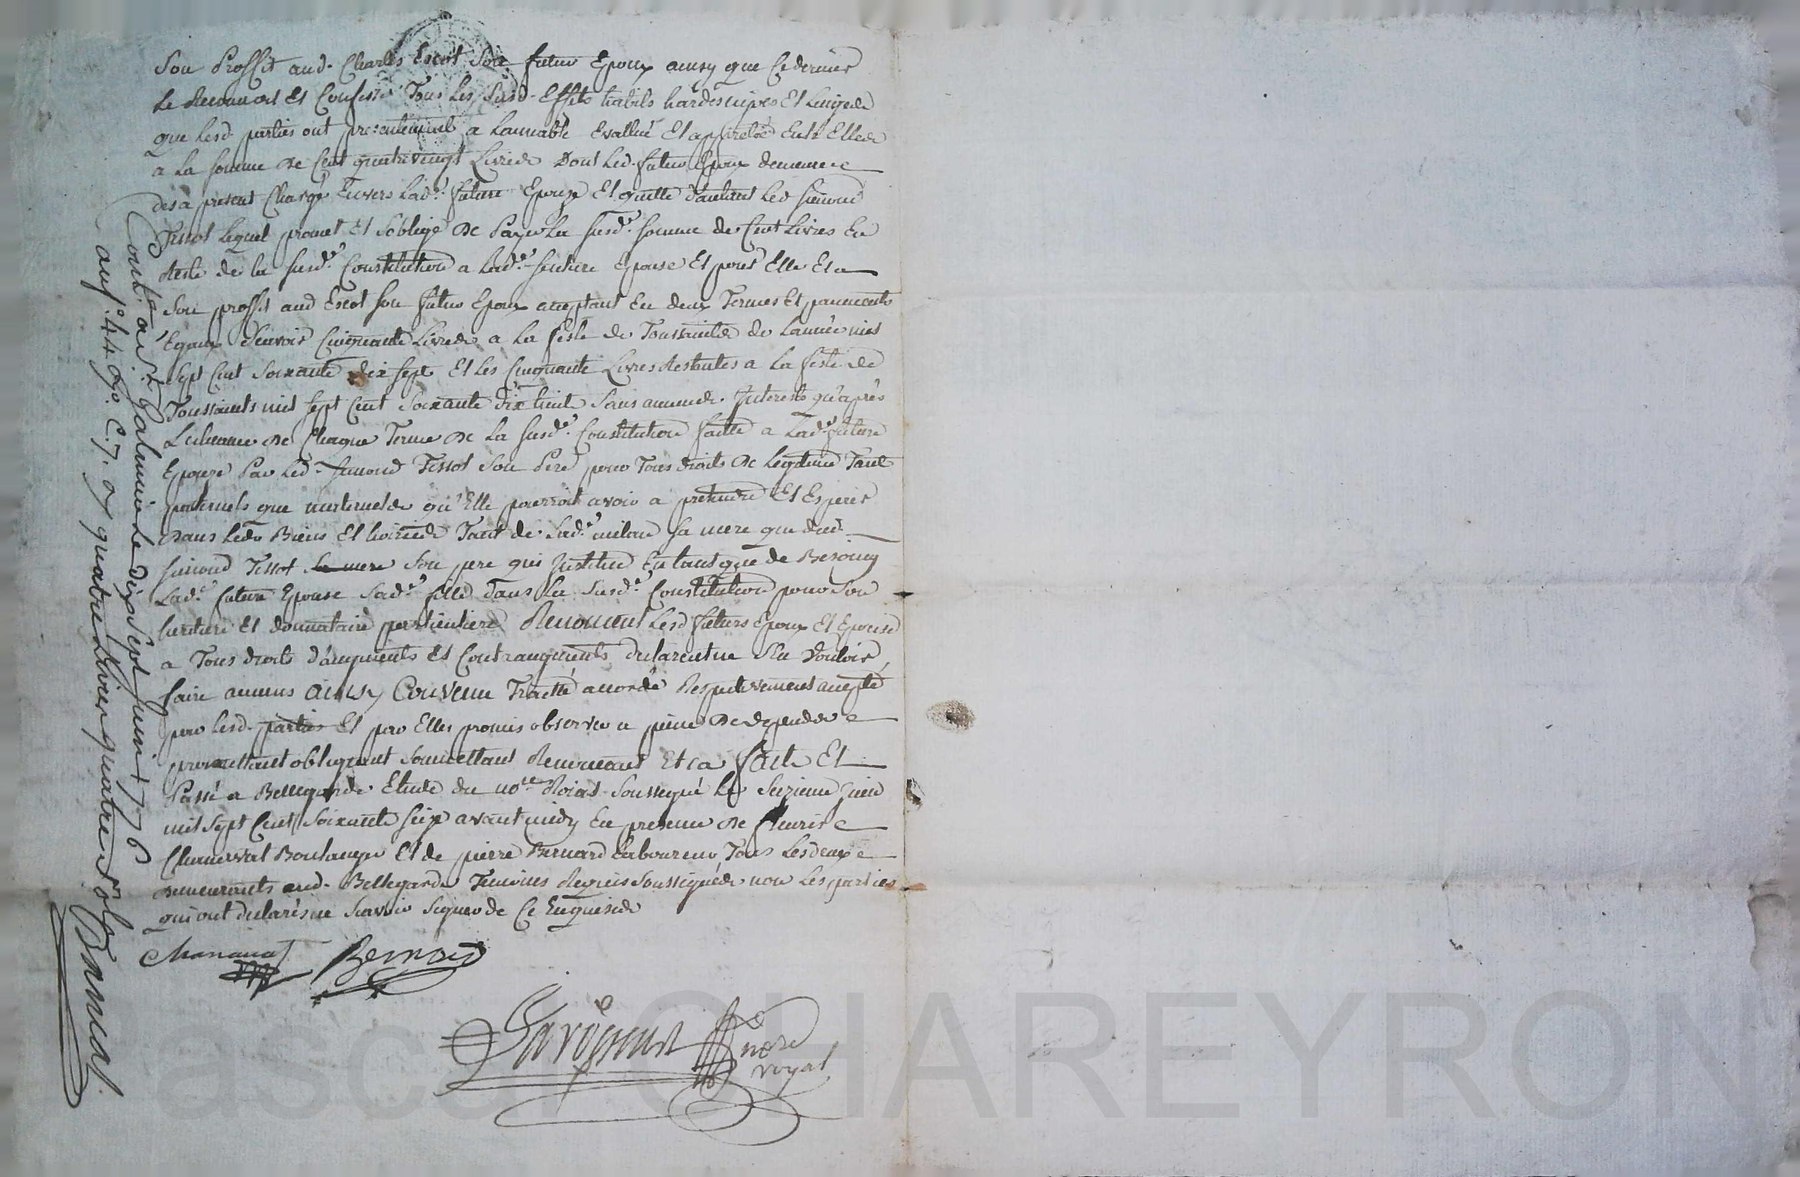 Son Proffit aud. Charles Escot Son futur Epoux ainsy que Ce dernier
Le Reconnoit Et Confesse Tous Les Susd. Effets habits hardes nipes Et Linge de
que Lesd parties ont presentement a Lamiable Evallué Et apprétié Entr Elles
a La somme de Cent quatrevingt Livres Dont Led. futur Epoux demeure
des a present Chargé Envers Lad.e future Epouze Et quitte d'autant Led Simond
Tissot Lequel promet Et Soblige de Payer La Susd.e somme de Cent Livres En
Reste de la susd.e Constitution a Lad.e future Epouse Et pour Elle Et a
Son proffit aud Escot son futur Epoux acceptant En deux Termes Et paiements
Egaux Scavoir Cinquante Livres a La feste de Toussaints de Lannée mil
Sept Cent Soixante dix sept Et Les Cinquante Livres Restantes a La feste de
Toussaints mil sept Cent Soixante dix huit Sans aucuns Interets qu'après
L'echeance de Chaque Terme de La Susd.e Constitution faitte a Lad.e future
Epouze Par Led. Simond Tissot Son Pere pour Tous droits de Legitime Tant
paternels que maternels qu'Elle pourroit avoir a pretendre Et Esperer
dans Leds Biens Et hoiries Tant de Lad.e sa mere que dud.
Simond Tissot sa mere Son pere qui Institue En tant que de Besoing
Lad.e future Epouse Sad.e fille dans La Susd.e Constitution pour Son
heritiere Et donnataire particuliere Renoncent Lesd futurs Epoux Et Epouse
a Tous droits d'augments Et Contraugments declarent ne En Vouloir
faire aucuns ainsy Convenu Traitté accordé Respectivement accepté
par Lesd. parties Et par Elles promis observer a peine de depends
promettant obligeant Soumettant Renonçant Et Ca fait Et
Passé a Bellegarde Etude du no.re Roial Soussigné Le Seizieme Juin
mil Sept Cent Soixante Seize avant midy En presence de fleuris
Boulanger Et de pierre Bernard Laboureur Tous Les deux
demeurants aud. Bellegarde Temoins Requis Soussignés non Les parties
qui ont declaré ne Scavoir Signer de Ce Enquis
Bernard
nore
royal
Cont.lé a St. Galmier Le dix Sept juin 1776
au f.o 44 quatre Livres quatre Sols
Pascal CHAREYRON